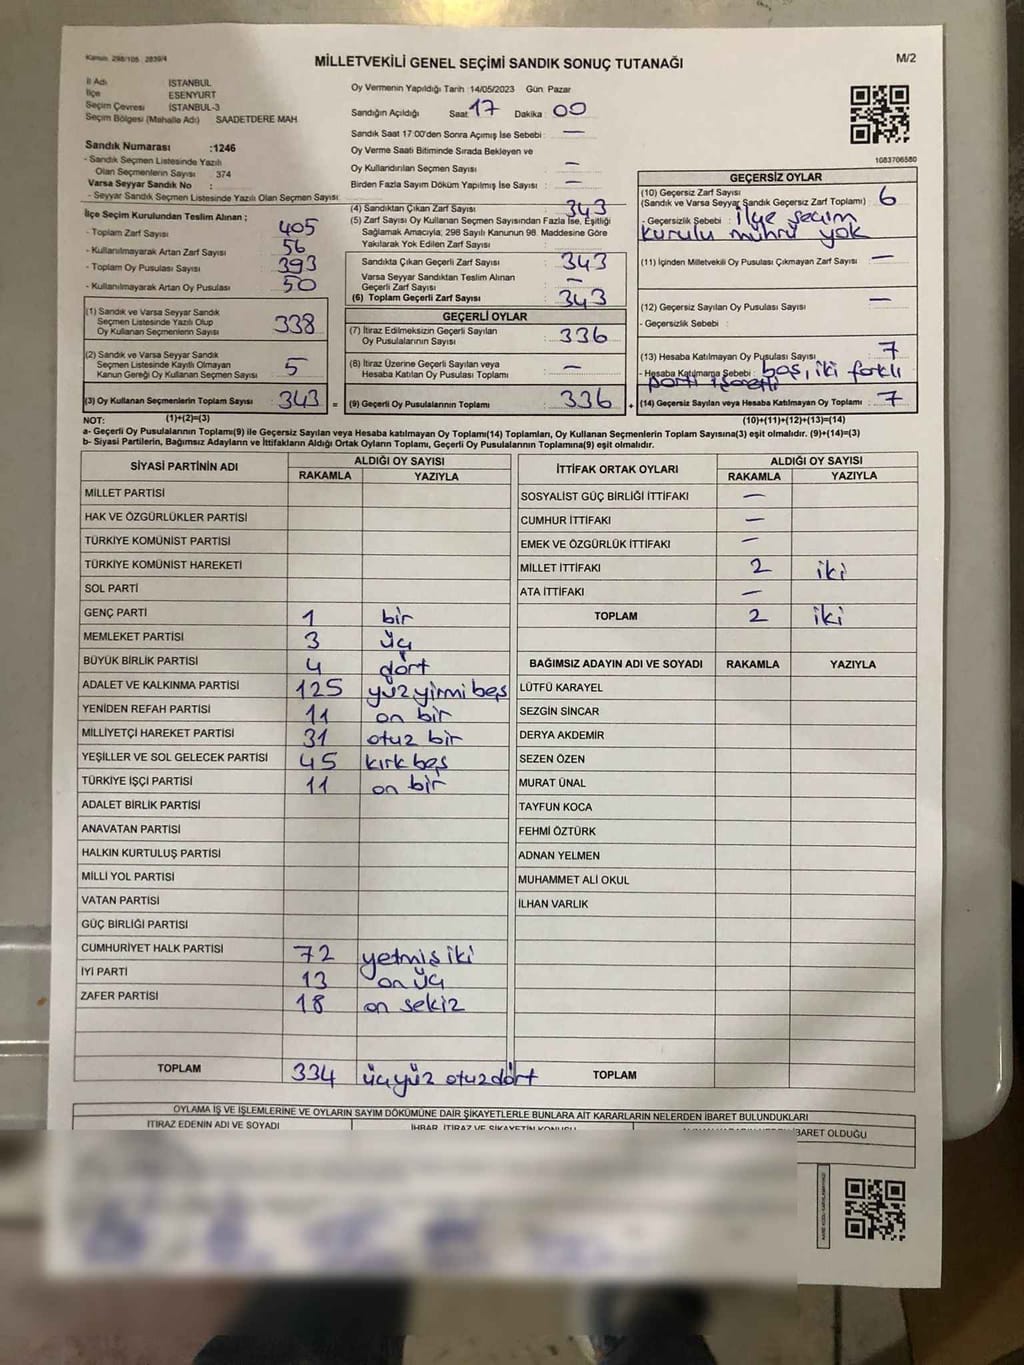 Kanun: 298/105 2839/4
MİLLETVEKİLİ GENEL SEÇİMİ SANDIK SONUÇ TUTANAĞI
M/2
İl Adı İSTANBUL
İlçe ESENYURT
Seçim Çevresi İSTANBUL-3
Seçim Bölgesi (Mahalle Adı) SAADETDERE MAH
Sandık Numarası :1246
- Sandık Seçmen Listesinde Yazılı
Olan Seçmenlerin Sayısı : 374
Varsa Seyyar Sandık No :
- Seyyar Sandık Seçmen Listesinde Yazılı Olan Seçmen Sayısı
Oy Vermenin Yapıldığı Tarih :14/05/2023 Gün: Pazar
Sandığın Açıldığı Saat: 17 Dakika: 00
Sandık Saat 17:00'den Sonra Açımış İse Sebebi : —
Oy Verme Saati Bitiminde Sırada Bekleyen ve
Oy Kullandırılan Seçmen Sayısı : —
Birden Fazla Sayım Döküm Yapılmış İse Sayısı : —
1083706580
İlçe Seçim Kurulundan Teslim Alınan ;
- Toplam Zarf Sayısı : 405
- Kullanılmayarak Artan Zarf Sayısı : 56
- Toplam Oy Pusulası Sayısı : 393
- Kullanılmayarak Artan Oy Pusulası : 50
(1) Sandık ve Varsa Seyyar Sandık
Seçmen Listesinde Yazılı Olup
Oy Kullanan Seçmenlerin Sayısı : 338
(2) Sandık ve Varsa Seyyar Sandık
Seçmen Listesinde Kayıtlı Olmayan
Kanun Gereği Oy Kullanan Seçmen Sayısı : 5
(3) Oy Kullanan Seçmenlerin Toplam Sayısı : 343 =
(1)+(2)=(3)
(4) Sandıktan Çıkan Zarf Sayısı : 343
(5) Zarf Sayısı Oy Kullanan Seçmen Sayısından Fazla İse, Eşitliği
Sağlamak Amacıyla; 298 Sayılı Kanunun 98. Maddesine Göre
Yakılarak Yok Edilen Zarf Sayısı :
Sandıkta Çıkan Geçerli Zarf Sayısı : 343
Varsa Seyyar Sandıktan Teslim Alınan
Geçerli Zarf Sayısı : —
(6) Toplam Geçerli Zarf Sayısı : 343
GEÇERLİ OYLAR
(7) İtiraz Edilmeksizin Geçerli Sayılan
Oy Pusulalarının Sayısı : 336
(8) İtiraz Üzerine Geçerli Sayılan veya
Hesaba Katılan Oy Pusulası Toplamı : —
(9) Geçerli Oy Pusulalarının Toplamı : 336 +
GEÇERSİZ OYLAR
(10) Geçersiz Zarf Sayısı
(Sandık ve Varsa Seyyar Sandık Geçersiz Zarf Toplamı) : 6
- Geçersizlik Sebebi : ilçe seçim
kurulu mührü yok
(11) İçinden Milletvekili Oy Pusulası Çıkmayan Zarf Sayısı : —
(12) Geçersiz Sayılan Oy Pusulası Sayısı : —
- Geçersizlik Sebebi :
(13) Hesaba Katılmayan Oy Pusulası Sayısı : 7
- Hesaba Katılmama Sebebi : boş, iki farklı
parti işareti
(14) Geçersiz Sayılan veya Hesaba Katılmayan Oy Toplamı : 7
(10)+(11)+(12)+(13)=(14)
NOT:
a- Geçerli Oy Pusulalarının Toplamı(9) ile Geçersiz Sayılan veya Hesaba katılmayan Oy Pusulalarının Toplamı(14) Toplamları, Oy Kullanan Seçmenlerin Toplam Sayısına(3) eşit olmalıdır. (9)+(14)=(3)
b- Siyasi Partilerin, Bağımsız Adayların ve İttifakların Aldığı Ortak Oyların Toplamı, Geçerli Oy Pusulalarının Toplamına(9) eşit olmalıdır.
SİYASİ PARTİNİN ADI ALDIĞI OY SAYISI
RAKAMLA YAZIYLA
MİLLET PARTİSİ
HAK VE ÖZGÜRLÜKLER PARTİSİ
TÜRKİYE KOMÜNİST PARTİSİ
TÜRKİYE KOMÜNİST HAREKETİ
SOL PARTİ
GENÇ PARTİ 1 bir
MEMLEKET PARTİSİ 3 üç
BÜYÜK BİRLİK PARTİSİ 4 dört
ADALET VE KALKINMA PARTİSİ 125 yüz yirmi beş
YENİDEN REFAH PARTİSİ 11 on bir
MİLLİYETÇİ HAREKET PARTİSİ 31 otuz bir
YEŞİLLER VE SOL GELECEK PARTİSİ 45 kırk beş
TÜRKİYE İŞÇİ PARTİSİ 11 on bir
ADALET BİRLİK PARTİSİ
ANAVATAN PARTİSİ
HALKIN KURTULUŞ PARTİSİ
MİLLİ YOL PARTİSİ
VATAN PARTİSİ
GÜÇ BİRLİĞİ PARTİSİ
CUMHURİYET HALK PARTİSİ 72 yetmiş iki
İYİ PARTİ 13 on üç
ZAFER PARTİSİ 18 on sekiz
TOPLAM 334 üçyüz otuzdört
İTTİFAK ORTAK OYLARI ALDIĞI OY SAYISI
RAKAMLA YAZIYLA
SOSYALİST GÜÇ BİRLİĞİ İTTİFAKI —
CUMHUR İTTİFAKI —
EMEK VE ÖZGÜRLÜK İTTİFAKI —
MİLLET İTTİFAKI 2 iki
ATA İTTİFAKI —
TOPLAM 2 iki
BAĞIMSIZ ADAYIN ADI VE SOYADI RAKAMLA YAZIYLA
LÜTFÜ KARAYEL
SEZGİN SİNCAR
DERYA AKDEMİR
SEZEN ÖZEN
MURAT ÜNAL
TAYFUN KOCA
FEHMİ ÖZTÜRK
ADNAN YELMEN
MUHAMMET ALİ OKUL
İLHAN VARLIK
TOPLAM
OYLAMA İŞ VE İŞLEMLERİNE VE OYLARIN SAYIM DÖKÜMÜNE DAİR ŞİKAYETLERLE BUNLARA AİT KARARLARIN NELERDEN İBARET BULUNDUKLARI
İTİRAZ EDENİN ADI VE SOYADI İHBAR, İTİRAZ VE ŞİKAYETİN KONUSU İBARET OLDUĞU